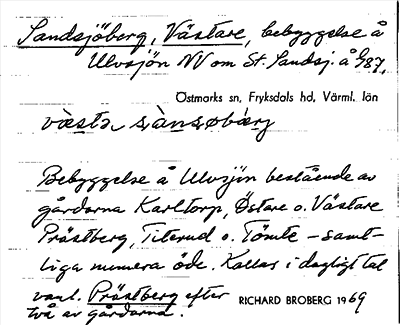 Sandsjöberg, Västare, bebyggelse å
Ulvsjön NV om St. Sandsj. å G87,
Östmarks sn, Fryksdals hd, Värml. län
västa sànsøbærj
Bebyggelse å Ulvsjön bestående av
gårdarna Karltorp, Östare o. Västare
Pråstberg, Titerud o. Tömte – samt-
liga numera öde. Kallas i dagligt tal
vanl. Pråstberg efter
två av gårdarna.
RICHARD BROBERG 1969